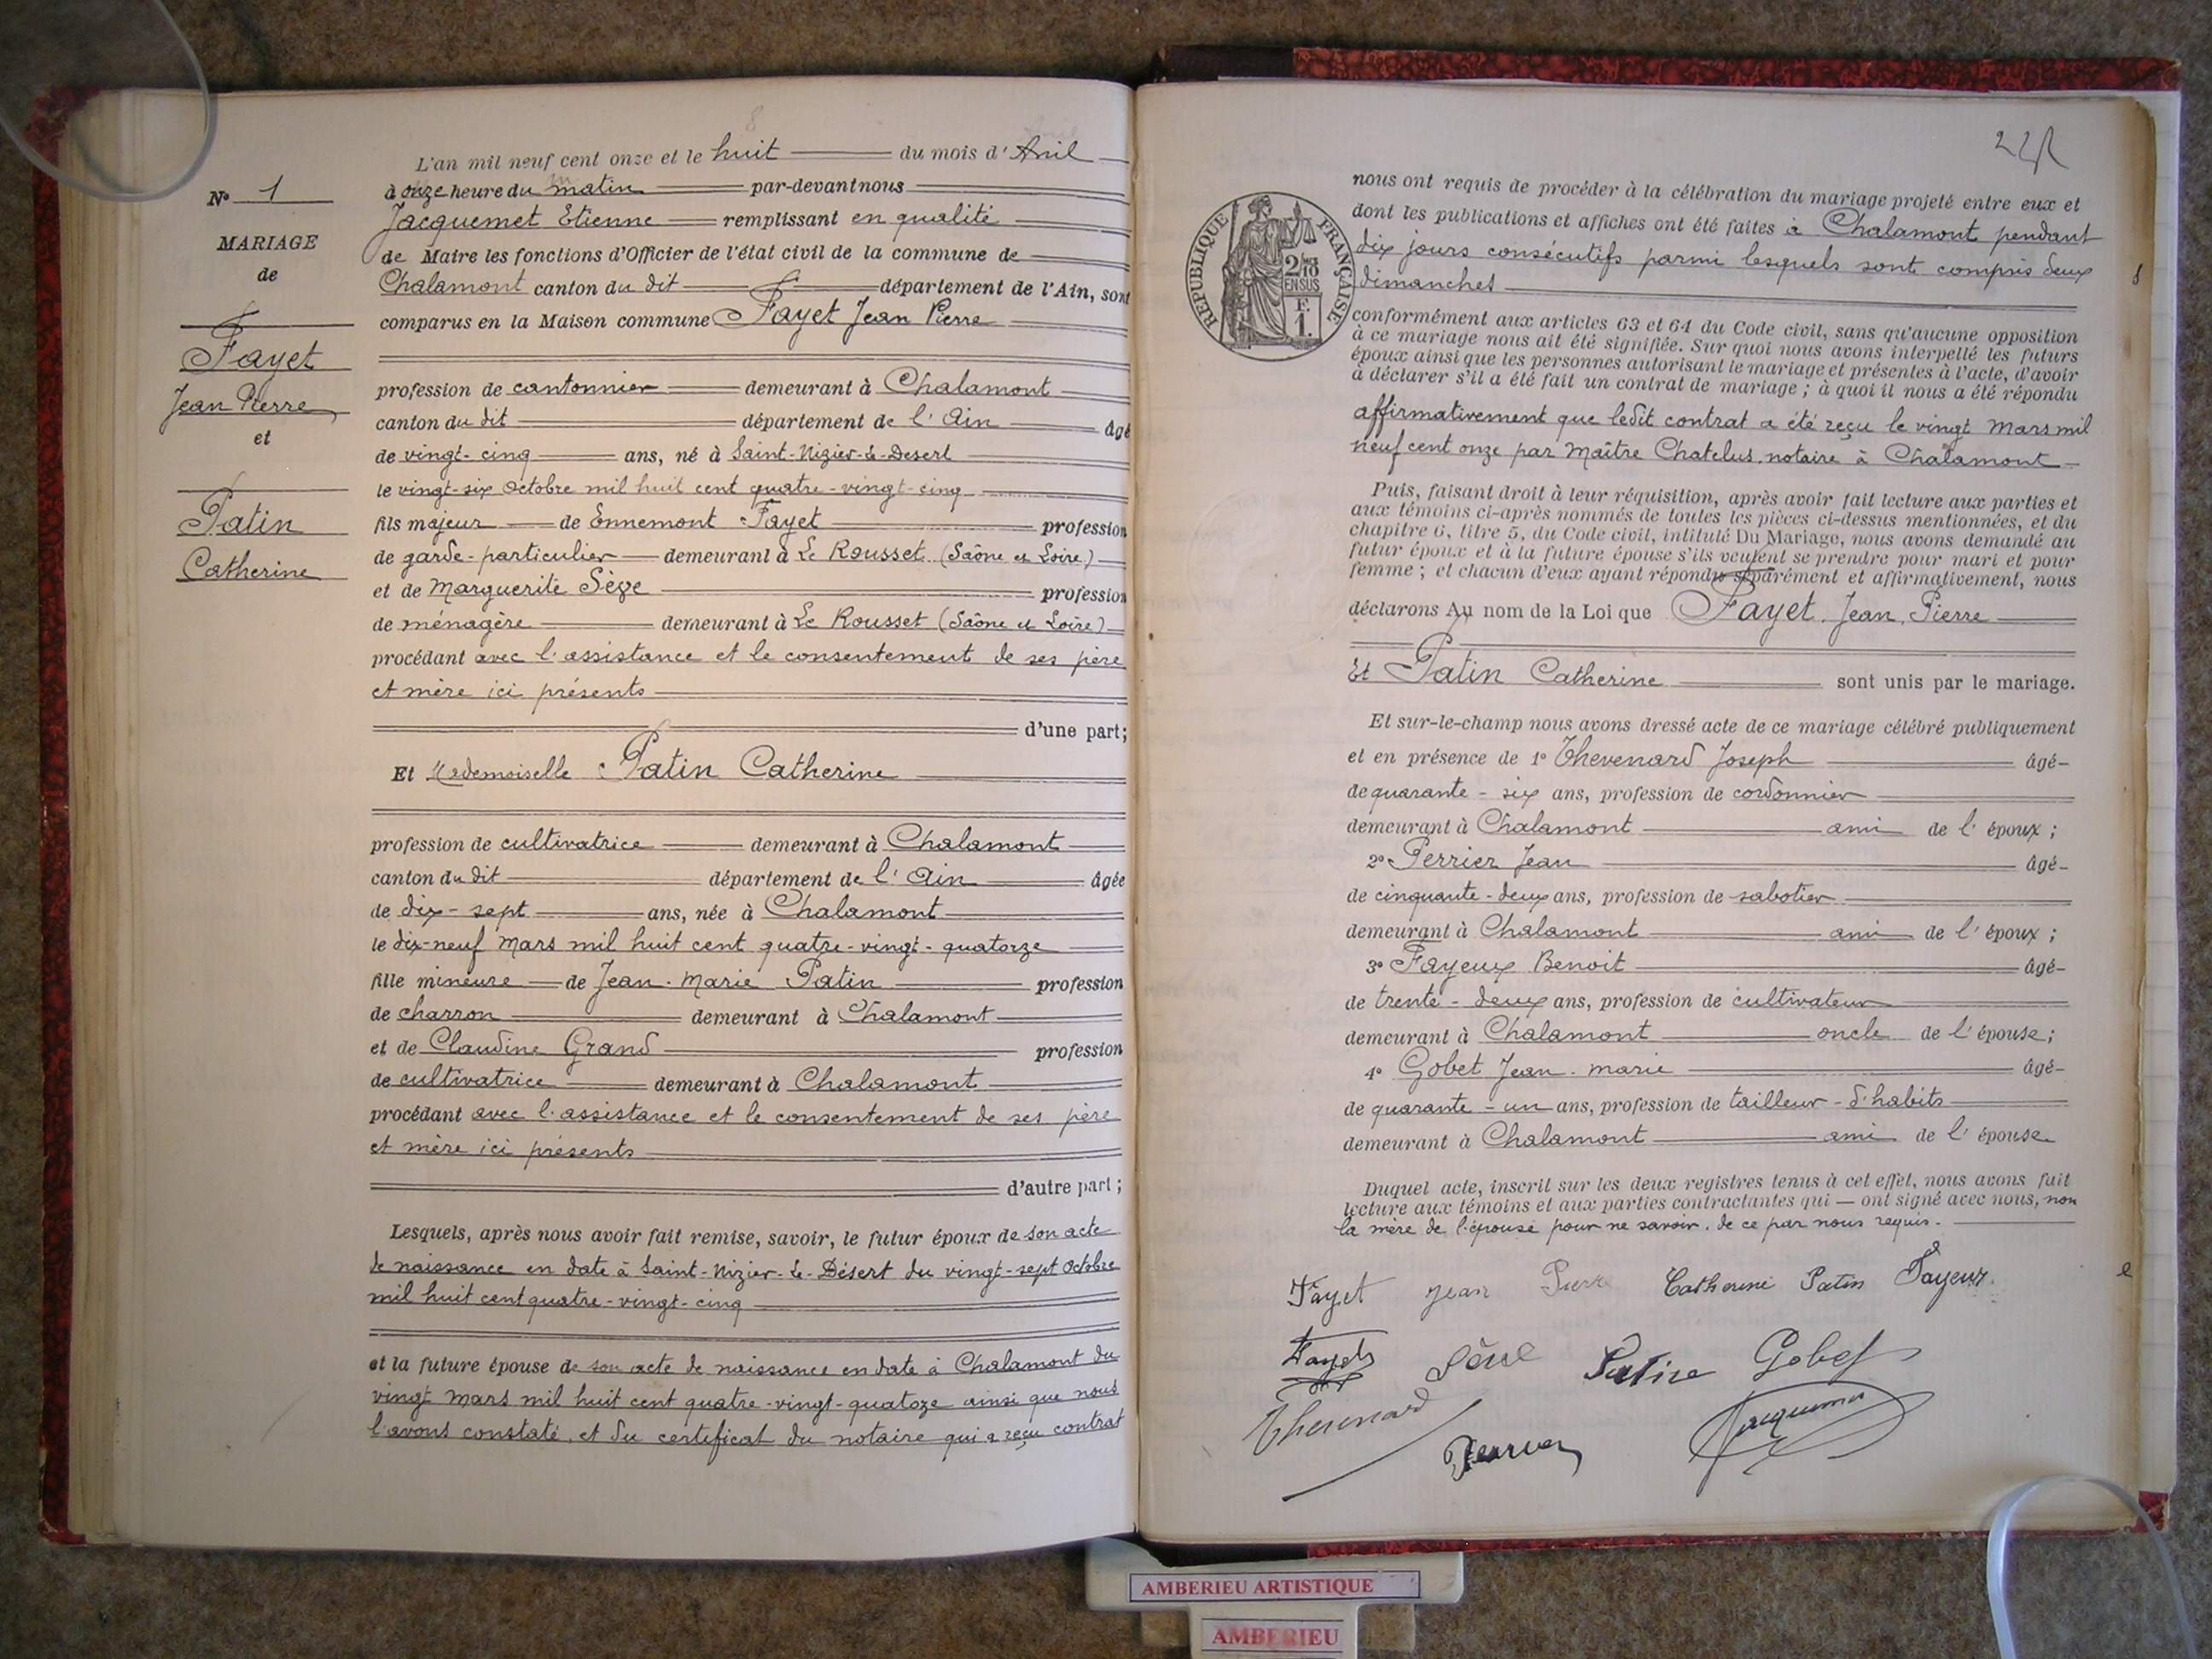 L'an mil neuf cent onze et le huit du mois d'Avril
à onze heure du matin par-devant nous
Jacquemet Etienne remplissant en qualité
de Maire les fonctions d'Officier de l'état civil de la commune de
Chalamont canton du dit département de l'Ain, sont
comparus en la Maison commune Fayet Jean Pierre
profession de cantonnier demeurant à Chalamont
canton du dit département de l'Ain âgé
de vingt-cinq ans, né à Saint-Nizier-le-Desert
le vingt-six Octobre mil huit cent quatre-vingt-cinq
fils majeur de Ennemont Fayet profession
de garde-particulier demeurant à Le Rousset (Saône et Loire)
et de Marguerite Sève profession
de ménagère demeurant à Le Rousset (Saône et Loire)
procédant avec l'assistance et le consentement de ses père
et mère ici présents
d'une part;
Et Mademoiselle Patin Catherine
profession de cultivatrice demeurant à Chalamont
canton du dit département de l'Ain âgée
de dix-sept ans, née à Chalamont
le dix-neuf Mars mil huit cent quatre-vingt-quatorze
fille mineure de Jean-Marie Patin profession
de charron demeurant à Chalamont
et de Claudine Grand profession
de cultivatrice demeurant à Chalamont
procédant avec l'assistance et le consentement de ses père
et mère ici présents
d'autre part;
Lesquels, après nous avoir fait remise, savoir, le futur époux de son acte
de naissance en date à Saint-Nizier-le-Désert du vingt-sept Octobre
mil huit cent quatre-vingt-cinq
et la future épouse de son acte de naissance en date à Chalamont du
vingt Mars mil huit cent quatre-vingt-quatoze ainsi que nous
l'avons constaté, et du certificat du notaire qui a reçu contrat
N° 1
MARIAGE
de
Fayet
Jean Pierre
et
Patin
Catherine
RÉPUBLIQUE FRANÇAISE
2/10
EN SUS
F.
1.
nous ont requis de procéder à la célébration du mariage projeté entre eux et
dont les publications et affiches ont été faites à Chalamont pendant
dix jours consécutifs parmi lesquels sont compris deux
dimanches
conformément aux articles 63 et 64 du Code civil, sans qu'aucune opposition
à ce mariage nous ait été signifiée. Sur quoi nous avons interpellé les futurs
époux ainsi que les personnes autorisant le mariage et présentes à l'acte, d'avoir
à déclarer s'il a été fait un contrat de mariage; à quoi il nous a été répondu
affirmativement que ledit contrat a été reçu le vingt Mars mil
neuf cent onze par Maître Chatelus, notaire à Chalamont
Puis, faisant droit à leur réquisition, après avoir fait lecture aux parties et
aux témoins ci-après nommés de toutes les pièces ci-dessus mentionnées, et du
chapitre 6, titre 5, du Code civil, intitulé Du Mariage, nous avons demandé au
futur époux et à la future épouse s'ils veulent se prendre pour mari et pour
femme; et chacun d'eux ayant répondu séparément et affirmativement, nous
déclarons Au nom de la Loi que Fayet Jean Pierre
Et Patin Catherine sont unis par le mariage.
Et sur-le-champ nous avons dressé acte de ce mariage célébré publiquement
et en présence de 1° Thevenard Joseph âgé
de quarante-six ans, profession de cordonnier
demeurant à Chalamont ami de l'époux;
2° Perrier Jean âgé
de cinquante-deux ans, profession de sabotier
demeurant à Chalamont ami de l'époux;
3° Fayeux Benoit âgé
de trente-deux ans, profession de cultivateur
demeurant à Chalamont oncle de l'épouse;
4° Gobet Jean-Marie âgé
de quarante-un ans, profession de tailleur-d'habits
demeurant à Chalamont ami de l'épouse
Duquel acte, inscrit sur les deux registres tenus à cet effet, nous avons fait
lecture aux témoins et aux parties contractantes qui — ont signé avec nous, non
la mère de l'épouse pour ne savoir, de ce par nous requis.
Fayet Jean Pierre Catherine Patin Fayeux
Fayet Sève Patin Gobet
Thevenard Perrier Jacquemet
AMBERIEU ARTISTIQUE
AMBERIEU